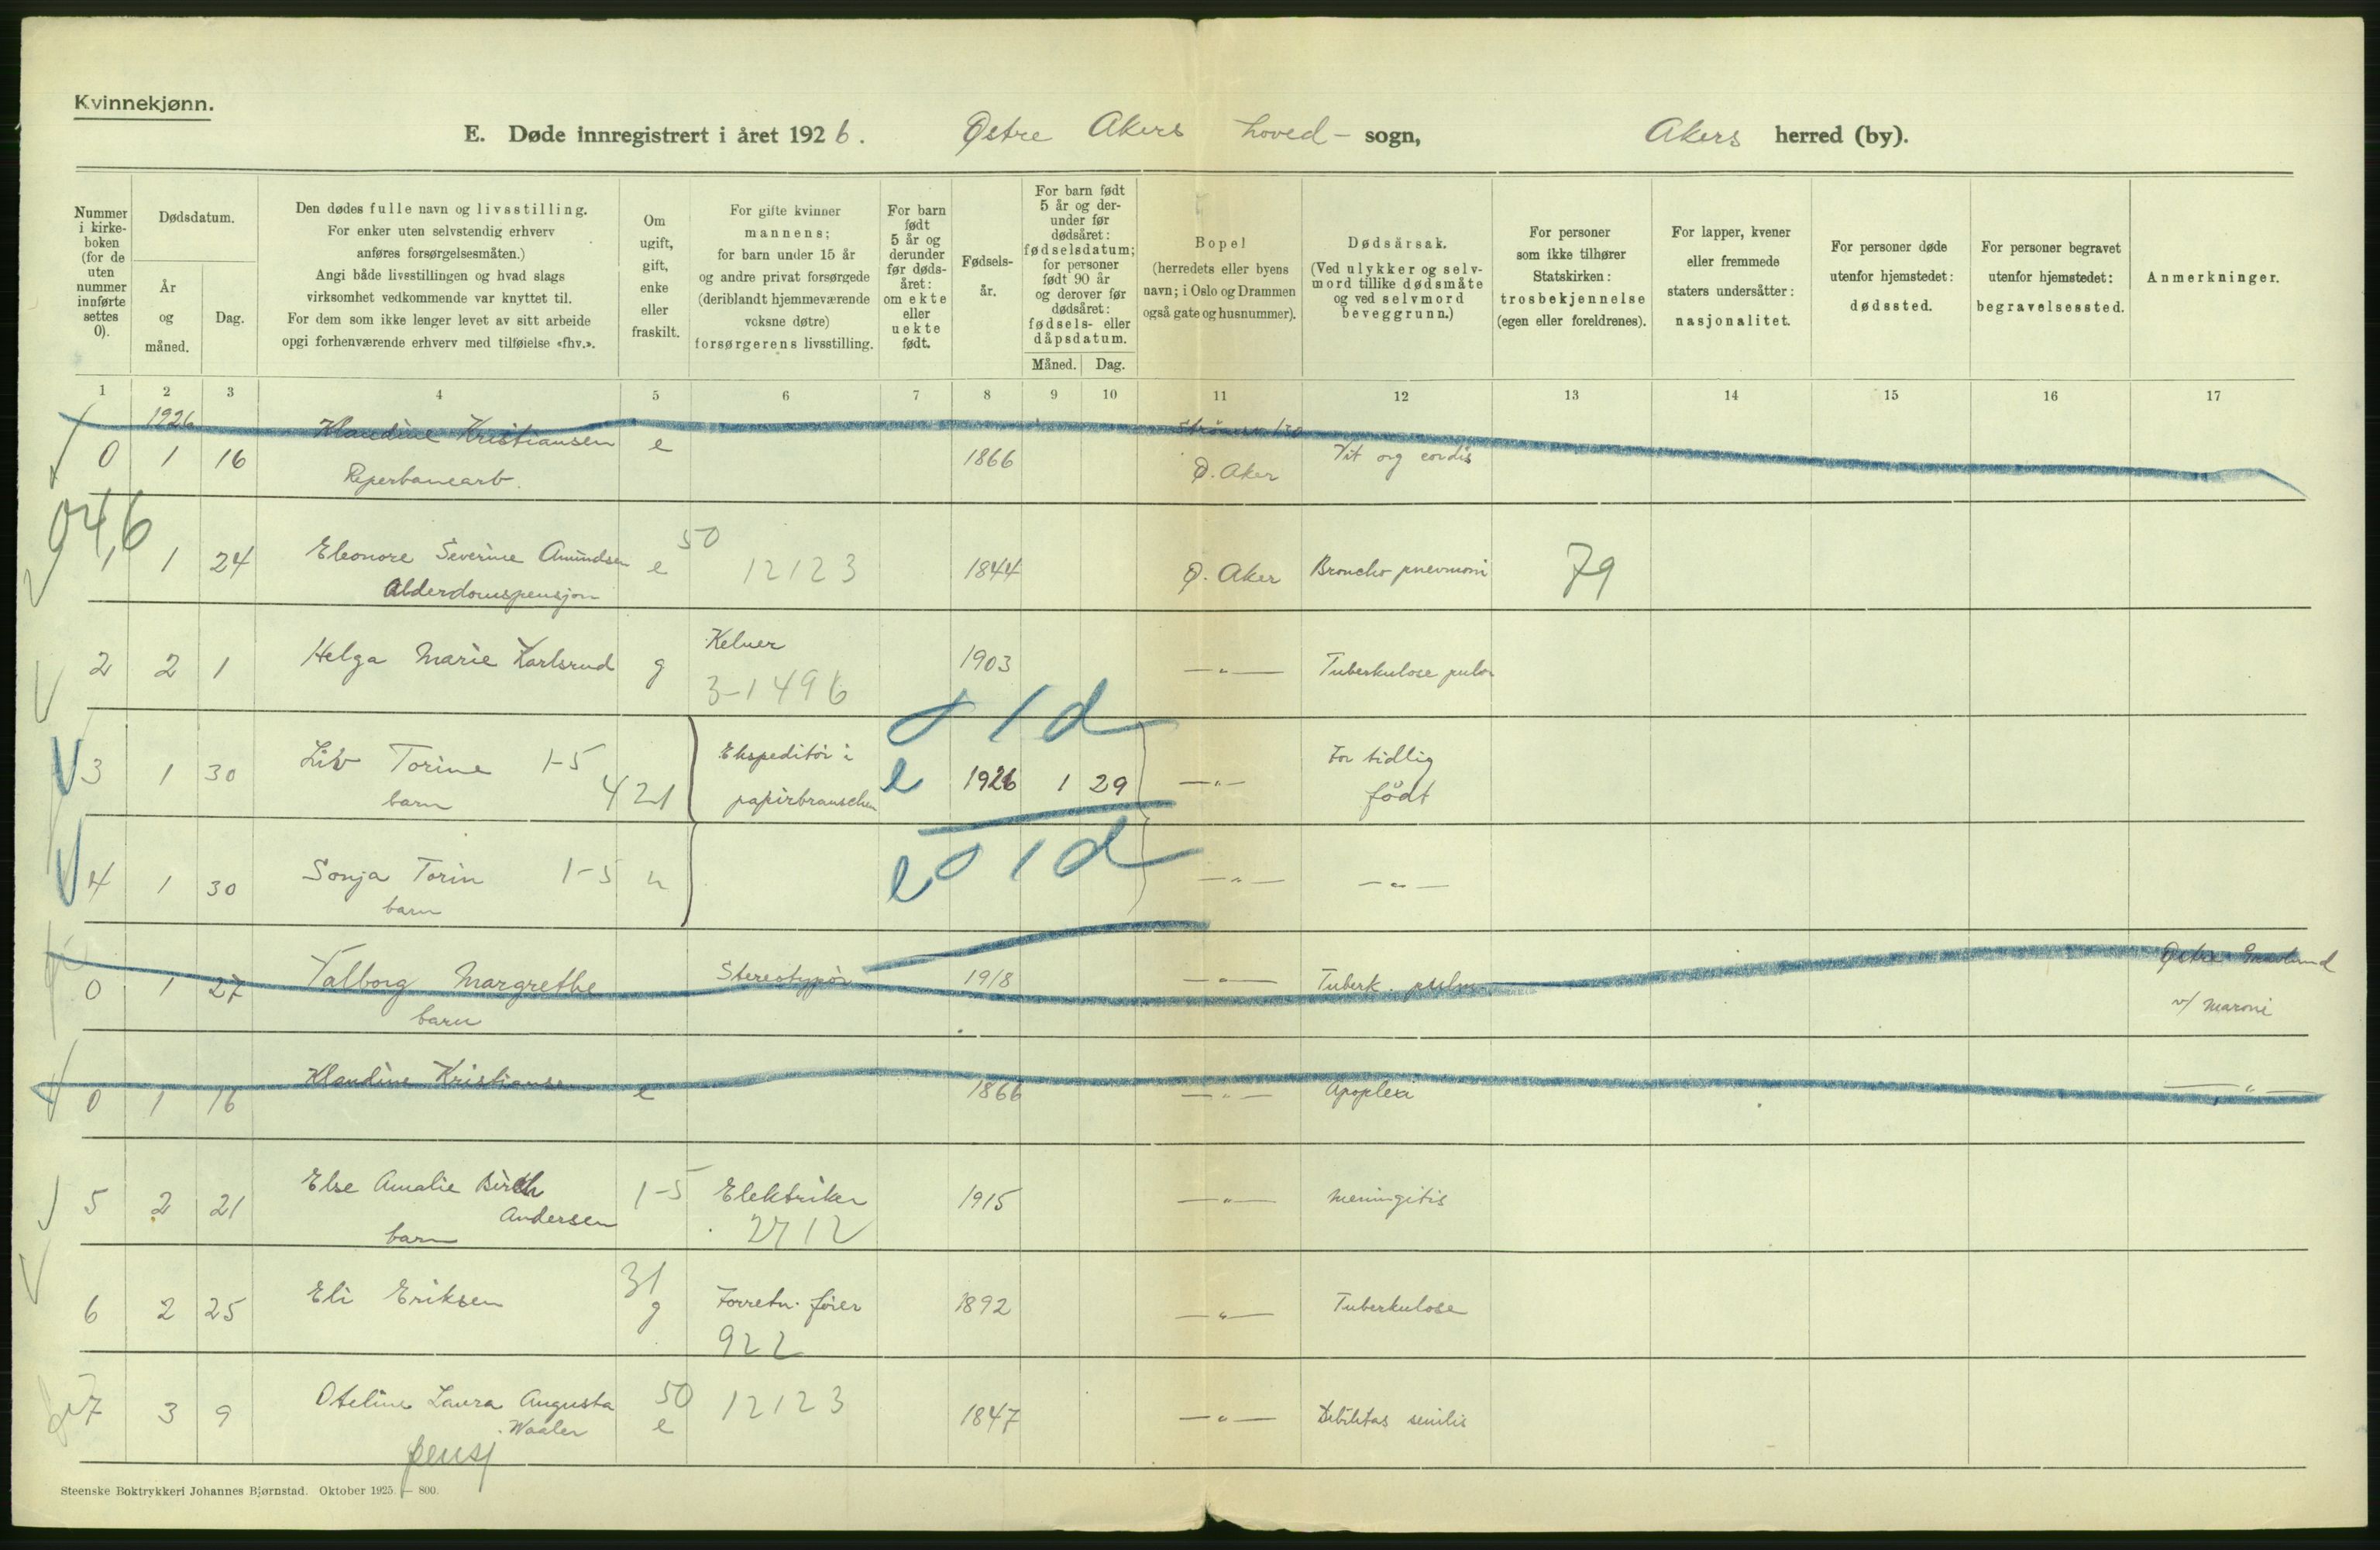 Kvinnekjønn.
E. Døde innregistrert i året 1926. Østre Akers hoved- sogn, Akers herred (by).
Nummer i kirke-boken (for de uten nummer innførte settes 0).
Dødsdatum.
År og måned.
Dag.
Den dødes fulle navn og livsstilling.
For enker uten selvstendig erhverv
anføres forsørgelsesmåten.)
Angi både livsstillingen og hvad slags
virksomhet vedkommende var knyttet til.
For dem som ikke lenger levet av sitt arbeide
opgi forhenværende erhverv med tilføielse «fhv.».
Om ugift, gift, enke eller fraskilt.
For gifte kvinner
mannens;
for barn under 15 år
og andre privat forsørgede
(deriblandt hjemmeværende
voksne døtre)
forsørgerens livsstilling.
For barn født 5 år og derunder før døds-året: om ekte eller uekte født.
Fødsels-år.
For barn født 5 år og der-under før dødsåret: fødselsdatum; for personer født 90 år og derover før dødsåret: fødsels- eller dåpsdatum.
Måned. Dag.
Bopel
(herredets eller byens
navn; i Oslo og Drammen
også gate og husnummer).
Dødsårsak.
(Ved ulykker og selv-
mord tillike dødsmåte
og ved selvmord
beveggrunn.)
For personer
som ikke tilhører
Statskirken:
trosbekjennelse
(egen eller foreldrenes).
For lapper, kvener
eller fremmede
staters undersåtter:
nasjonalitet.
For personer døde
utenfor hjemstedet:
dødssted.
For personer begravet
utenfor hjemstedet:
begravelsessted.
Anmerkninger.
1 2 3 4 5 6 7 8 9 10 11 12 13 14 15 16 17
1926 Klaudine Kristiansen e Strømsv 130
0 1 16 1866 Vit org cordis
Reperbanearb. Ø. Aker
94,6 50
1 24 Eleonore Severine Amundsen e 12123 1844 Ø. Aker Broncho pnevmoni 79
Alderdomspensjon
Kelner
2 2 1 Helga Marie Karlsrud g 1903 —"— Tuberkulose pulm
3-1496
01d
3 1 30 Liv Torine 1-5 Ekspeditør i e 1926 1 29 —"— For tidlig
barn 421 papirbranschen født
01d
4 1 30 Sonja Torin 1-5 " e —"— —"—
barn
0 1 27 Valborg Margrethe Stereotypør 1918 —"— Tuberk. pulm Østre Gravlund
barn v/ Maroni
Klaudine Kristianse
0 1 16 e 1866 —"— Apoplexi —"—
5 2 21 Else Amalie Birch 1-5 Elektriker 1915 —"— Meningitis
Andersen 2712
barn
31
6 2 25 Eli Eriksen g Forretn. fører 1892 —"— Tuberkulose
922
7 3 9 Oteline Laura Augusta 50 12123 1847 —"— Debilitas senilis
Waaler e
pensj
Steenske Boktrykkeri Johannes Bjørnstad. Oktober 1925. — 800.